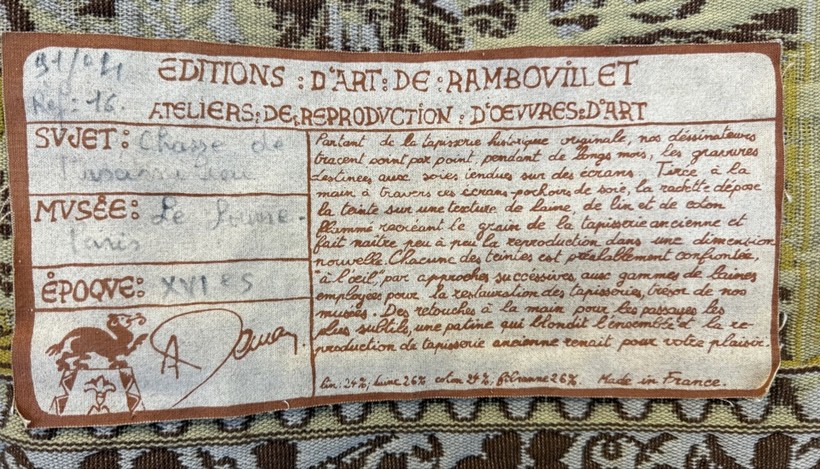 91/04
EDITIONS : D'ART : DE : RAMBOVILLET
Ref: 16.
ATELIERS : DE : REPRODVCTION : D'ŒVVRES : D'ART
SVJET : Chasse de
MVSÉE : Le Louvre -
Paris
ÉPOQVE : XVIe S
Partant de la tapisserie historique originale, nos dessinateurs
tracent point par point, pendant de longs mois, les gravures
destinées aux soies tendues sur des écrans. Tirée à la
main à travers ces écrans-pochoirs de soie, la raclette dépose
la teinte sur une texture de laine, de lin et de coton
flammé recréant le grain de la tapisserie ancienne et
fait naître peu à peu la reproduction dans une dimension
nouvelle. Chacune des teintes est préalablement confrontée,
"à l'œil", par approches successives aux gammes de laines
employées pour la restauration des tapisseries, trésor de nos
musées. Des retouches à la main pour les passages les
plus subtils, une patine qui blondit l'ensemble et la re-
production de tapisserie ancienne renaît pour votre plaisir.
lin: 24%, laine 26% coton 24% fibranne 26%. Made in France.